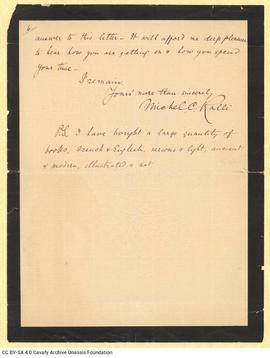 4/
answer to this letter - It will afford me deep pleasure
to hear how you are getting on & how you spend
your time -
I remain
Yours more than sincerely
Mickel C. Ralli
P.S. I have bought a large quantity of
books, French & English, serious & light, ancient
& modern, illustrated & not
CC BY-SA 4.0 Cavafy Archive Onassis Foundation